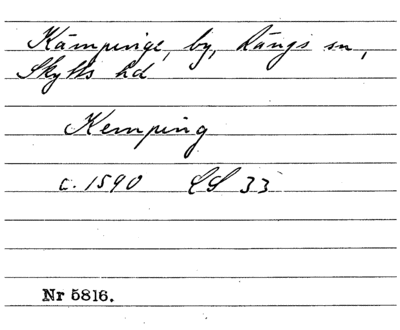 Kämpinge, by, Rängs sn,
Skytts hd
Kemping
c. 1590 LS 33
Nr 5816.